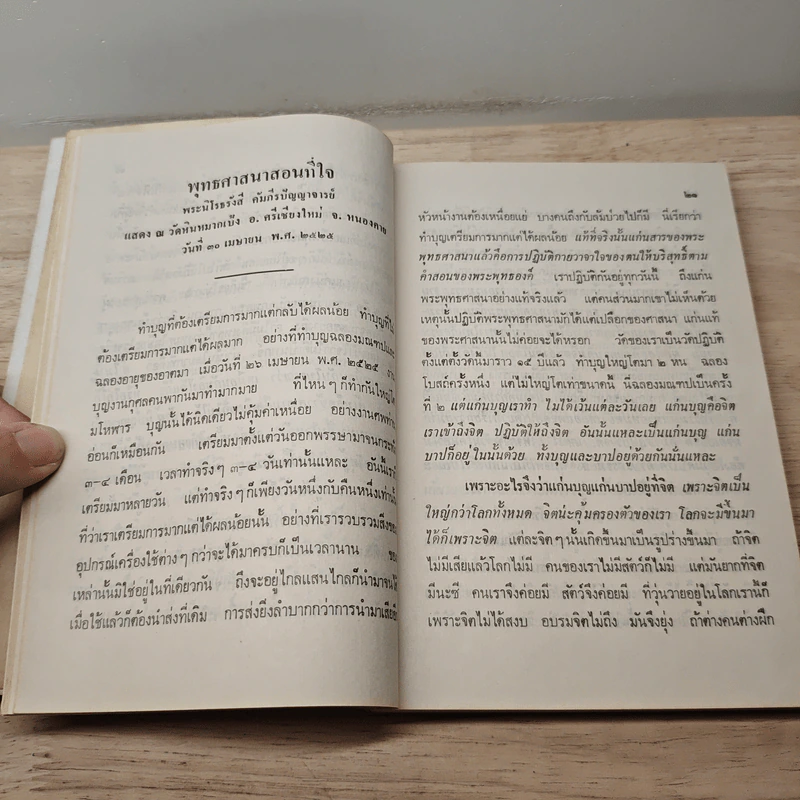 พุทธศาสนาสอนที่ใจ
พระนิโรธรังสี คัมภีรปัญญาจารย์
แสดง ณ วัดหินหมากเป้ง อ. ศรีเชียงใหม่ จ. หนองคาย
วันที่ ๓๐ เมษายน พ.ศ. ๒๕๒๕
ทำบุญที่ต้องเตรียมการมากแต่กลับได้ผลน้อย ทำบุญที่ไม่
ต้องเตรียมการมากแต่ได้ผลมาก อย่างที่ทำบุญฉลองมณฑปและ
ฉลองอายุของอาตมา เมื่อวันที่ ๒๖ เมษายน พ.ศ. ๒๕๒๕ งาน
บุญงานกุศลคนพากันมาทำมากมาย ที่ไหนๆ ก็ทำกันใหญ่โต
มโหฬาร บุญนั้นได้นิดเดียวไม่คุ้มค่าเหนื่อย อย่างงานศพท่าน
อ่อนก็เหมือนกัน เตรียมมาตั้งแต่วันออกพรรษามาจนกระทั่ง
๓-๔ เดือน เวลาทำจริงๆ ๓-๔ วันเท่านั้นแหละ อันนี้เรา
เตรียมมาหลายวัน แต่ทำจริงๆ ก็เพียงวันหนึ่งกับคืนหนึ่งเท่านั้น
ที่ว่าเราเตรียมการมากแต่ได้ผลน้อยนั้น อย่างที่เรารวบรวมสิ่งของ
อุปกรณ์เครื่องใช้ต่างๆ กว่าจะได้มาครบก็เป็นเวลานาน ของ
เหล่านั้นมิใช่อยู่ในที่เดียวกัน ถึงจะอยู่ไกลแสนไกลก็นำมาจนได้
เมื่อใช้แล้วก็ต้องนำส่งที่เดิม การส่งยิ่งลำบากกว่าการนำมาเสียอีก
๒๑
หัวหน้างานต้องเหนื่อยแย่ บางคนถึงกับล้มป่วยไปก็มี นี่เรียกว่า
ทำบุญเตรียมการมากแต่ได้ผลน้อย แท้ที่จริงนั้นแก่นสารของพระ
พุทธศาสนาแล้วคือการปฏิบัติกายวาจาใจของตนให้บริสุทธิ์ตาม
คำสอนของพระพุทธองค์ เราปฏิบัติกันอยู่ทุกวันนี้ ถึงแก่น
พระพุทธศาสนาอย่างแท้จริงแล้ว แต่คนส่วนมากเขาไม่เห็นด้วย
เหตุนั้นปฏิบัติพระพุทธศาสนามักได้แต่เปลือกของศาสนา แก่นแท้
ของพระศาสนานั้นไม่ค่อยจะได้หรอก วัดของเราเป็นวัดปฏิบัติ
ตั้งแต่ตั้งวัดนี้มาราว ๑๕ ปีแล้ว ทำบุญใหญ่โตมา ๒ หน ฉลอง
โบสถ์ครั้งหนึ่ง แต่ไม่ใหญ่โตเท่าขนาดนี้ นี่ฉลองมณฑปเป็นครั้ง
ที่ ๒ แต่แก่นบุญเราทำ ไม่ได้เว้นแต่ละวันเลย แก่นบุญคือจิต
เราเข้าถึงจิต ปฏิบัติให้ถึงจิต อันนั้นแหละเป็นแก่นบุญ แก่น
บาปก็อยู่ในนั้นด้วย ทั้งบุญและบาปอยู่ด้วยกันนั่นแหละ
เพราะอะไรจึงว่าแก่นบุญแก่นบาปอยู่ที่จิต เพราะจิตเป็น
ใหญ่กว่าโลกทั้งหมด จิตน่ะคุ้มครองตัวของเรา โลกจะมีขึ้นมา
ได้ก็เพราะจิต แต่ละจิตๆ นั้นเกิดขึ้นมาเป็นรูปร่างขึ้นมา ถ้าจิต
ไม่มีเสียแล้วโลกไม่มี คนของเราไม่มีสัตว์ก็ไม่มี แต่มันยากที่จิต
มีนะซี คนเราจึงค่อยมี สัตว์จึงค่อยมี ที่วุ่นวายอยู่ในโลกเรานี้ก็
เพราะจิตไม่ได้สงบ อบรมจิตไม่ถึง มันจึงยุ่ง ถ้าต่างคนต่างฝึก